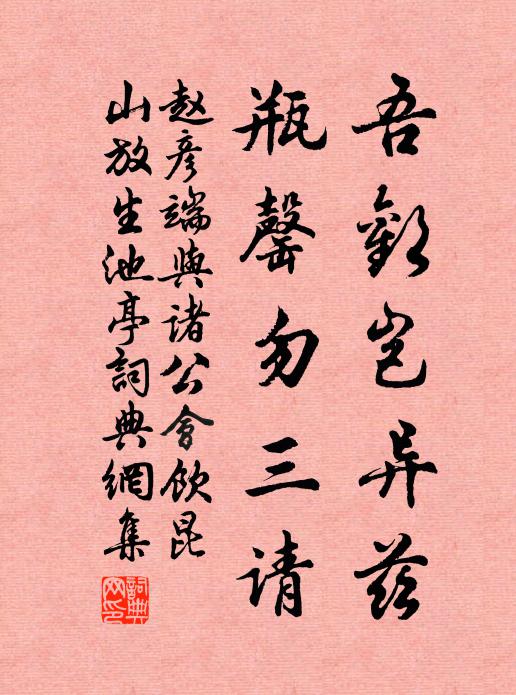 吾歡岂异兹
瓶罄勿三请
赵彦端與諸公會飲昆
山放生池亭詞典網集
詞典
网印